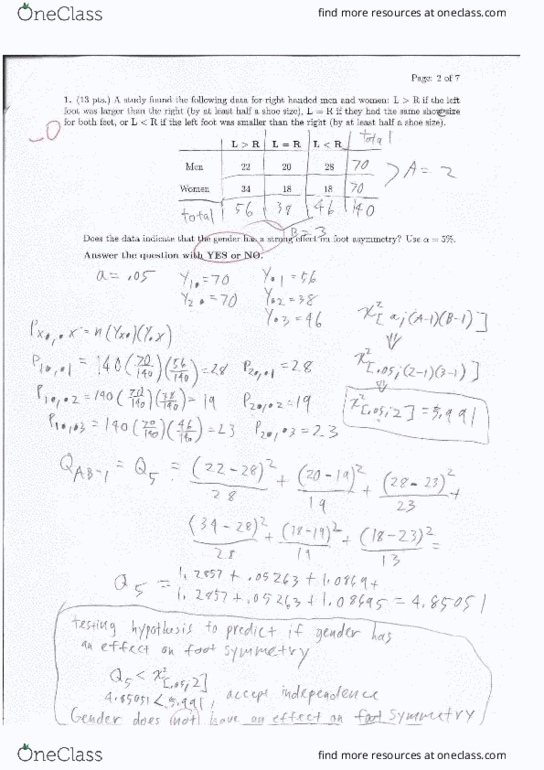 OneClass
find more resources at oneclass.com
Page: 2 of 7
1. (13 pts.) A study found the following data for right handed men and women: L > R if the left
foot was larger than the right (by at least half a shoe size), L = R if they had the same shoe size
for both feet, or L < R if the left foot was smaller than the right (by at least half a shoe size).
-0
L > R L = R L < R total
Men 22 20 28 70
Women 34 18 18 70
total 56 38 46 140
A = 2
B = 3
Does the data indicate that the gender has a strong effect on foot asymmetry? Use α = 5%.
Answer the question with YES or NO.
a = .05
Y1. = 70 Y.1 = 56
Y2. = 70 Y.2 = 38
Y.3 = 46
x²[a;(A-1)(B-1)]
⇓
x²[.05;(2-1)(3-1)]
⇓
x²[.05;2] = 5.991
Px0,0x = n(Yx0)(Y.x)
P10,01 = 140(70/140)(56/140) = 28 P20,01 = 28
P10,02 = 140(70/140)(38/140) = 19 P20,02 = 19
P10,03 = 140(70/140)(46/140) = 23 P20,03 = 23
QAB-1 = Q5 = (22-28)²/28 + (20-19)²/19 + (28-23)²/23 +
(34-28)²/28 + (18-19)²/19 + (18-23)²/13 =
Q5 = 1.2857 + .05263 + 1.0869 +
1.2857 + .05263 + 1.08695 = 4.85051
testing hypothesis to predict if gender has
an effect on foot symmetry
Q5 < x²[.05;2]
4.85051 < 5.991, accept independence
Gender does (not) have an effect on foot symmetry
OneClass
find more resources at oneclass.com